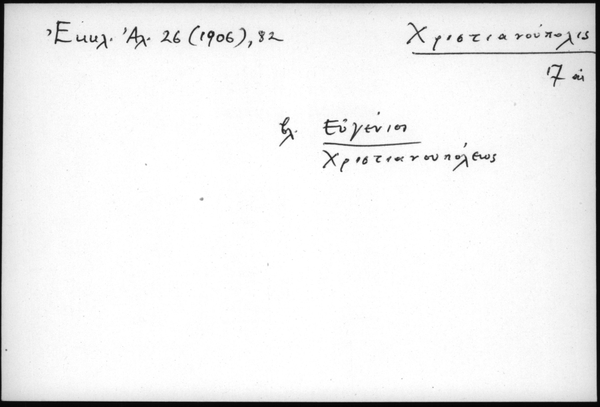 Ἐκκλ. Ἀλ. 26 (1906), 82
Χριστιανούπολις
17 αἰ
βλ. Εὐγένιος
Χριστιανουπόλεως